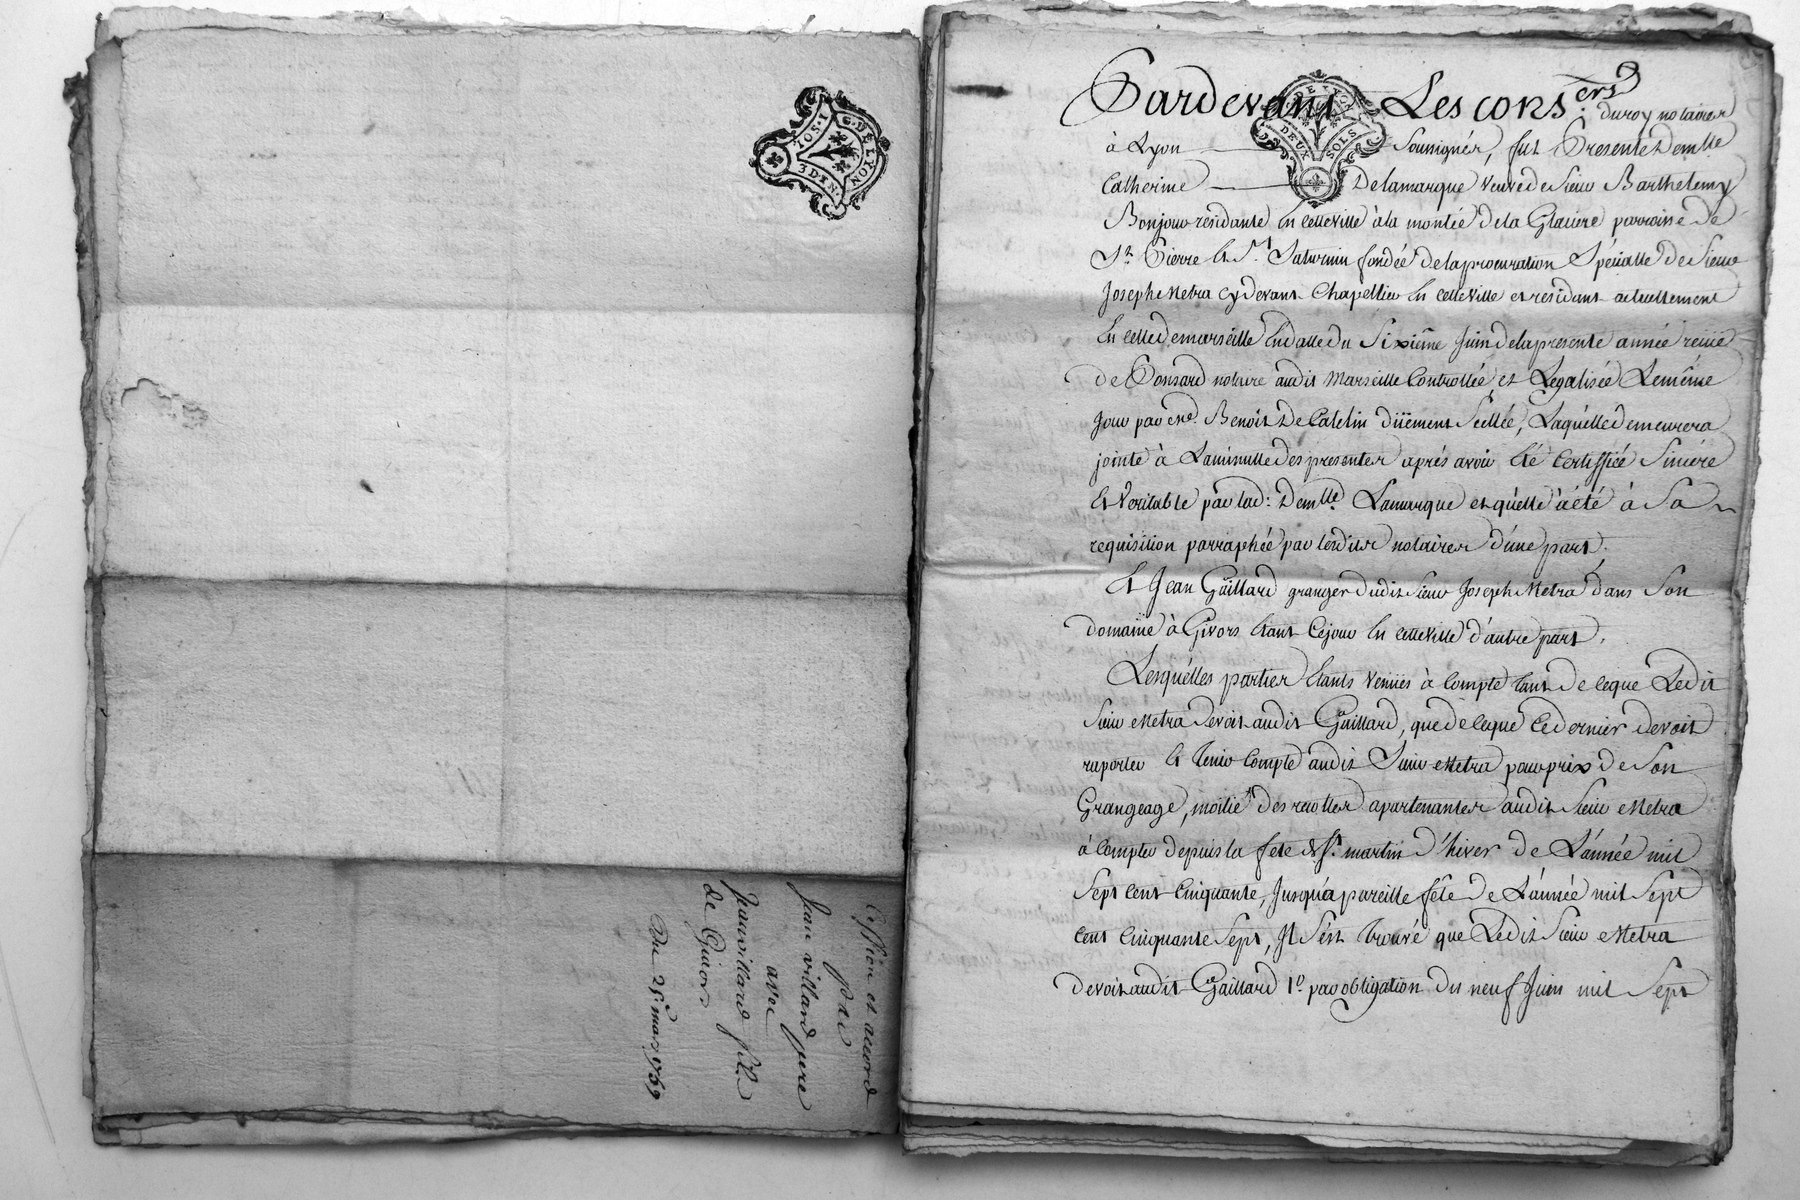 1 SOL
3 DEN.
G. DE LYON
Cession et accord
par
Jean villard pere
avec
Jean villard fils
de Givors
Du 25e. mars 1769
Pardevant Les cons.ers du roy notaires
G. DE LYON
DEUX SOLS
à Lyon Soussignés, fut Presente Demlle
Catherine Delamarque veuve de Sieur Barthelemy
Bonjour residante en cette ville à la montée de la Glaciere parroisse de
St. Pierre et St. Saturnin fondée de la procuration Spécialle de Sieur
Joseph Metra cydevant Chapellier en cette ville et residant actuellement
en celle de marseille en datte du Sixiême Juin de la presente année reçüe
de Ponsard notaire audit Marseille Controllée et Legalisée Le même
jour par me. Benoit De Catelin düement Scellée, Laquélle demeurera
jointe à La minutte des presentes aprés avoir été Certiffiée Sincére
et Veritable par lad: Demlle. Lamarque et qu'elle à été à Sa
requisition parraphée par lesdits notaires d'une part.
Et Jean Gaillard granger dudit Sieur Joseph Metra dans Son
domaine à Givors étant Cejour en cette ville d'autre part.
Lesquélles parties étants venües à Compte tant de ceque Ledit
Sieur Metra devoit audit Gaillard, que de ceque Ce dernier devoit
raporter et tenir Compte audit Sieur Metra pour prix de Son
Grangeage, moitié des recottes apartenantes audit Sieur Metra
à Compter depuis la fete de St. martin d'hiver de L'année mil
Sept Cent Cinquante, Jusqu'a pareille fête de L'année mil Sept
Cent Cinquante Sept, Il S'est trouvé que Ledit Sieur Metra
devoit audit Gaillard 1o. par obligation du neuf Juin mil Sept